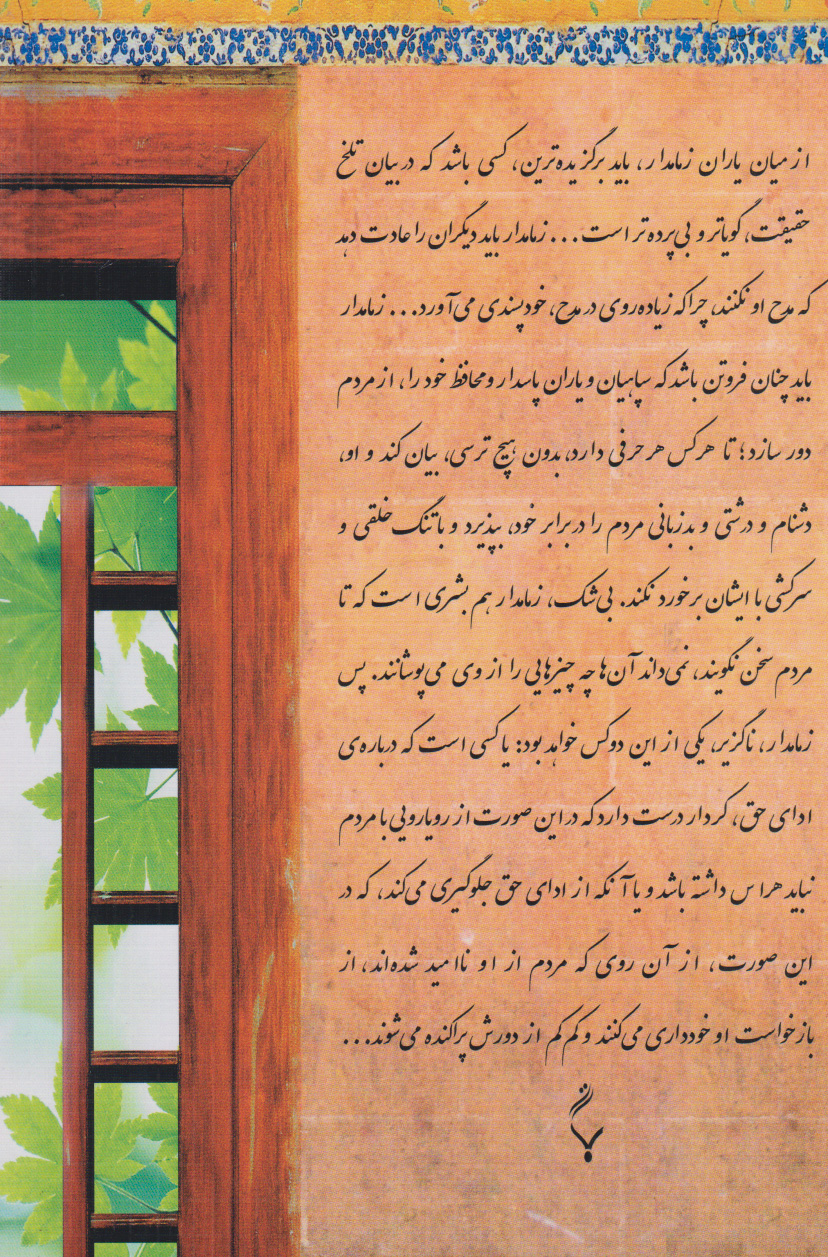 از میان یاران زمامدار، باید برگزیده‌ترین، کسی باشد که در بیان تلخ
حقیقت، گویاتر و بی‌پرده‌تر است... زمامدار باید دیگران را عادت دهد
که مدح او نکنند، چرا که زیاده‌روی در مدح، خودپسندی می‌آورد... زمامدار
باید چنان فروتن باشد که سپاهیان و یاران پاسدار و محافظ خود را، از مردم
دور سازد؛ تا هرکس هر حرفی دارد، بدون هیچ ترسی، بیان کند و او،
دشنام و درشتی و بدزبانی مردم را در برابر خود، بپذیرد و با تنگ خلقی و
سرکشی با ایشان برخورد نکند. بی‌شک، زمامدار هم بشری است که تا
مردم سخن نگویند، نمی‌داند آن‌ها چه چیزهایی را از وی می‌پوشانند. پس
زمامدار، ناگزیر، یکی از این دو کس خواهد بود: یا کسی است که درباره‌ی
ادای حق، کردار درست دارد که در این صورت از رویارویی با مردم
نباید هراس داشته باشد و یا آنکه از ادای حق جلوگیری می‌کند، که در
این صورت، از آن روی که مردم از او ناامید شده‌اند، از
بازخواست او خودداری می‌کنند و کم کم از دورش پراکنده می‌شوند...